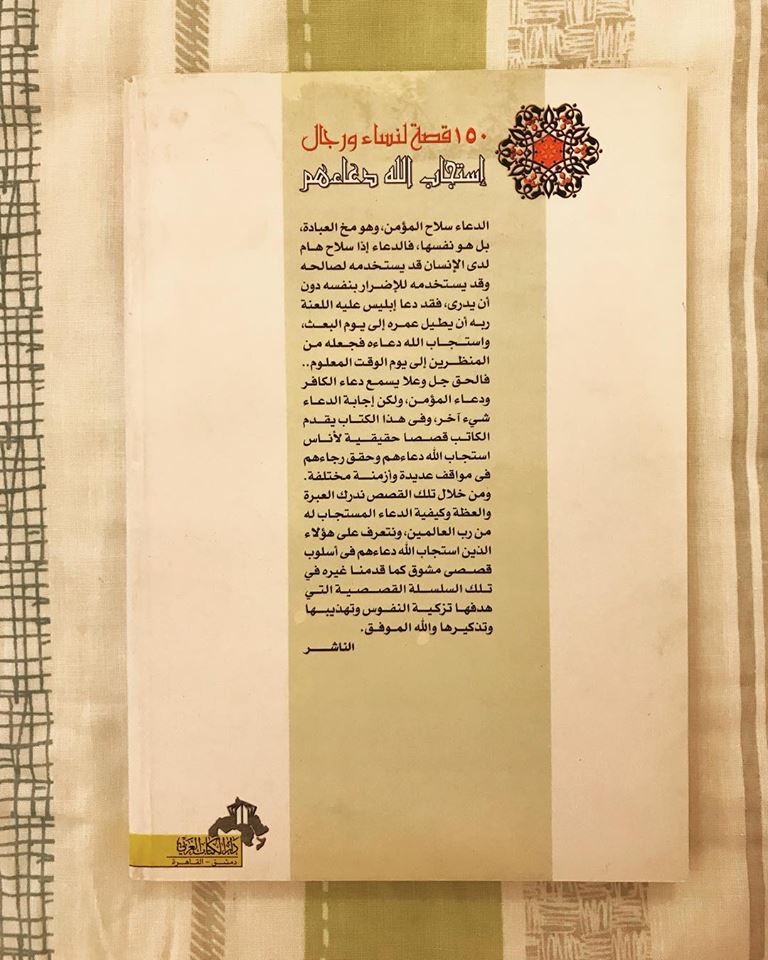 ١٥٠ قصة لنساء ورجال
إستجاب الله دعاءهم
الدعاء سلاح المؤمن، وهو مخ العبادة،
بل هو نفسها، فالدعاء إذا سلاح هام
لدى الإنسان قد يستخدمه لصالحه
وقد يستخدمه للإضرار بنفسه دون
أن يدرى، فقد دعا إبليس عليه اللعنة
ربه أن يطيل عمره إلى يوم البعث،
واستجاب الله دعاءه فجعله من
المنظرين إلى يوم الوقت المعلوم..
فالحق جل وعلا يسمع دعاء الكافر
ودعاء المؤمن، ولكن إجابة الدعاء
شيء آخر، وفى هذا الكتاب يقدم
الكاتب قصصا حقيقية لأناس
استجاب الله دعاءهم وحقق رجاءهم
فى مواقف عديدة وأزمنة مختلفة.
ومن خلال تلك القصص ندرك العبرة
والعظة وكيفية الدعاء المستجاب له
من رب العالمين، ونتعرف على هؤلاء
الذين استجاب الله دعاءهم فى أسلوب
قصصى مشوق كما قدمنا غيره في
تلك السلسلة القصصية التي
هدفها تزكية النفوس وتهذيبها
وتذكيرها والله الموفق.
الناشر
دار الكتاب العربي
دمشق - القاهرة